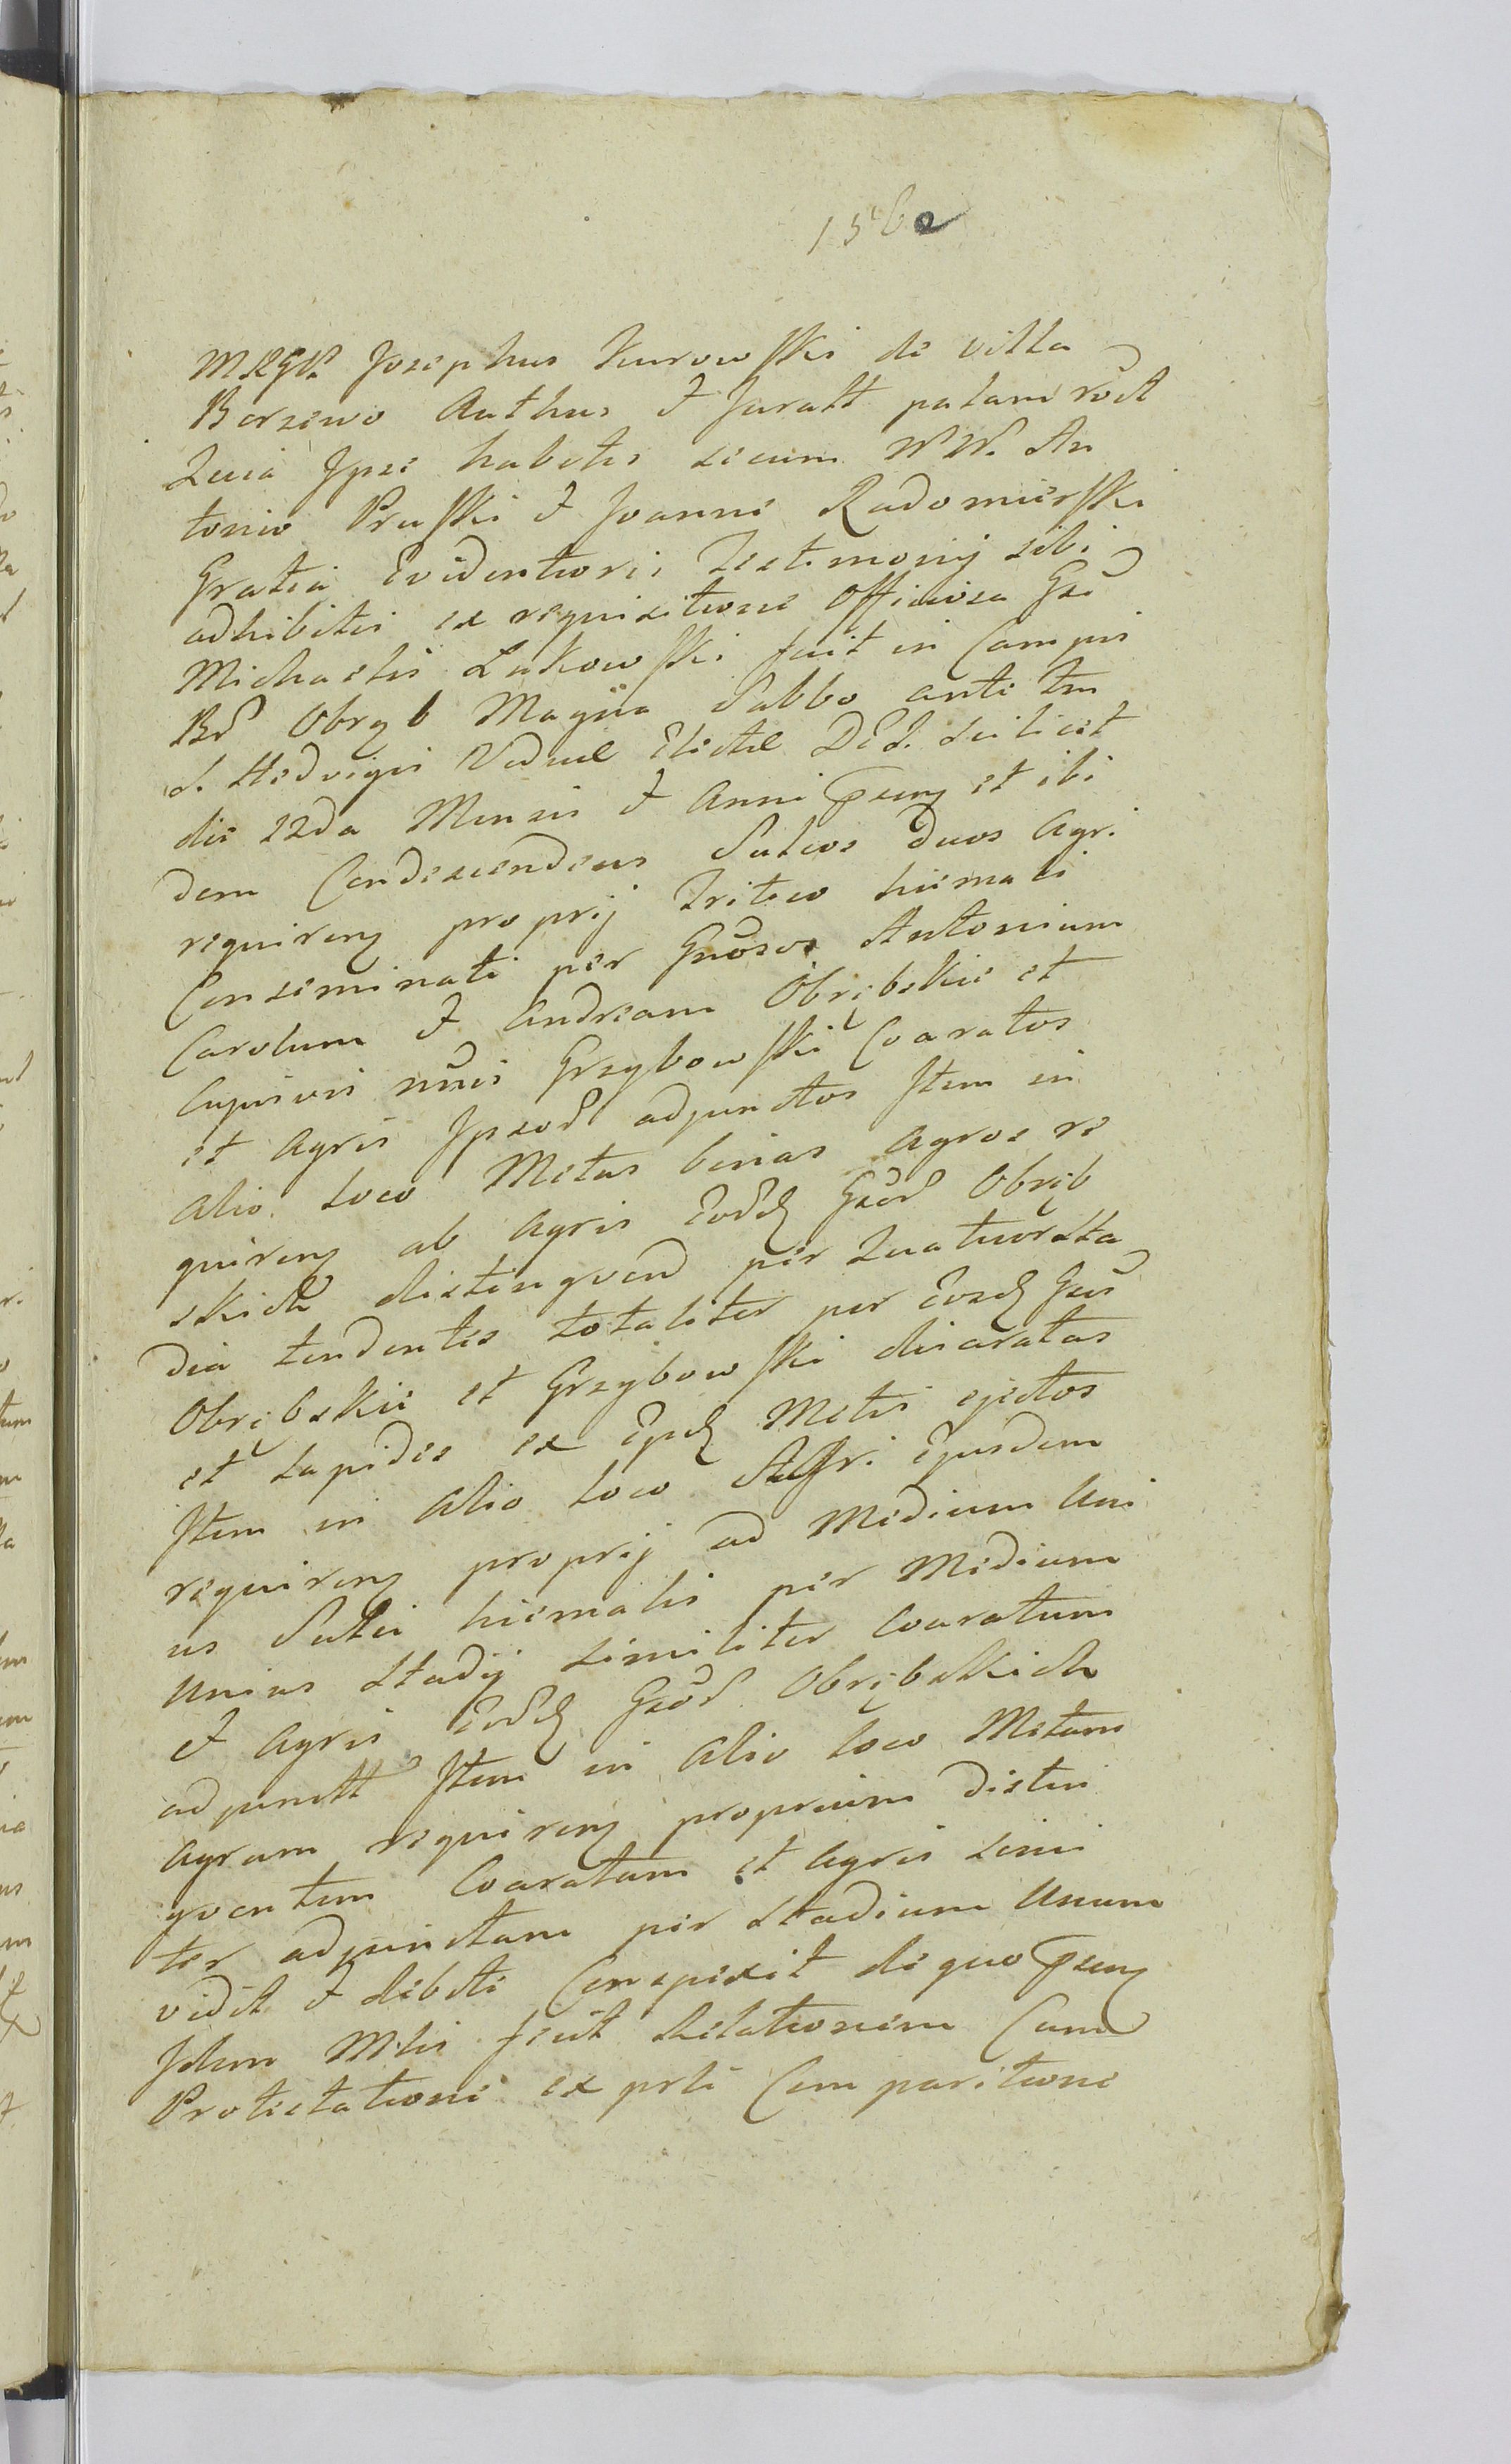 Josephus Kurowski de villa
Borzewo Authus & Juratt palam rõdt
Quia Ipse habitis secum NN. An
tonio Pruski & Joanne Radomierski
Gratia Evidentioris Testimonij sibi
adhibitis ex requisitione Officiosa Gsi
Michaelis Lukowski fuit in Campis
Br̃ Obryb Magna Sabbo ante tm
S. Hedvigis Viduæ Electæ DEI. scilicet
die 12da Mensis & Anni et ibi
dem Condescendens Sulcos duos Agri
requiren proprij Tritico hiemali
Conseminati per Gñosos Antonium
Carolum & Andream Obrębskie et
Cujusvis nñis Grzybowski Coaratos
et Agris Ipsor adjunctos Item in
Alio loco Metas binas Agros re
quiren ab Agris Eord Gsõr Obręb
skich distingvend per Quatuor sta
dia tendentes totaliter per Eosd Gsõs
Obrębskie et Grzybowski disaratas
et Lapides ex Metis ejectos
Item in Alio Loco Agri Ejusdem
requiren proprij ad Medium Uni
us Sulci hiemalis per Medium
Unius Stadij similiter Coaratum
& Agris Eord Gsõr Obrębskich
adjunctt Item in Alio Loco Metam
Agrum requiren proprium distin
gventem Coaratam et Agris simi
ter adjunctam per Stadium Unum
vidit & debite Conspexit de quo
Idem Mtlis fecit Relationem Cum
Protestatione ex prti Comparitione